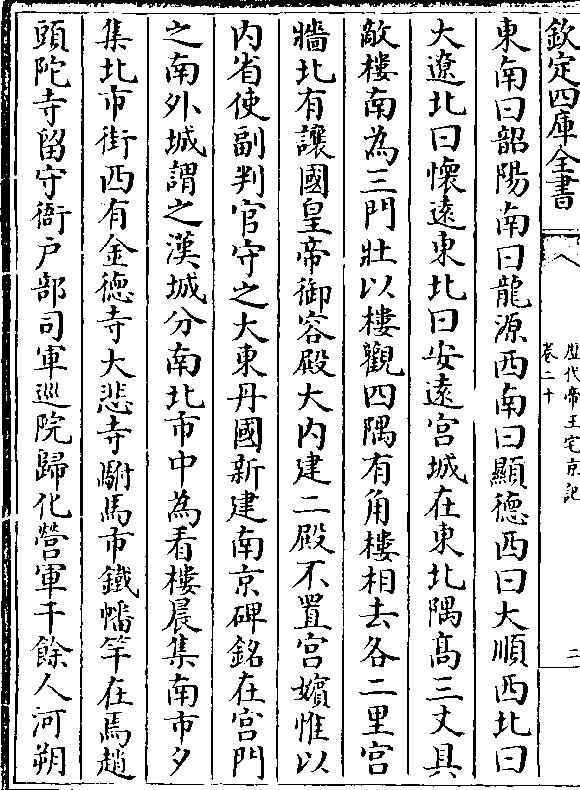 欽定四庫全書
歷代帝王宅京記
卷二十
二
東南曰韶陽南曰龍源西南曰顯德西曰大順西北曰
大遼北曰懷逺東北曰安逺宫城在東北隅髙三丈具
敵樓南為三門壯以樓觀四隅有角樓相去各二里宫
牆北有讓國皇帝御容殿大内建二殿不置宫嬪惟以
内省使副判官守之大東丹國新建南京碑銘在宫門
之南外城謂之漢城分南北市中為看樓晨集南市夕
集北市街西有金徳寺大悲寺駙馬市鐵幡竿在焉趙
頭陀寺留守衙户部司軍巡院歸化營軍千餘人河朔